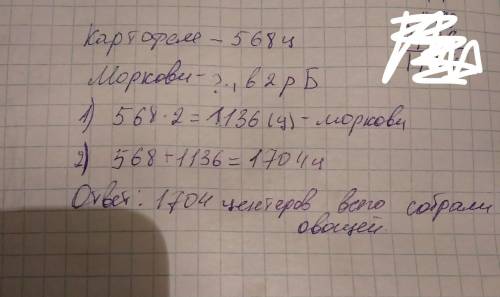 Картофеле - 568 ц
Моркови - ?, в 2 р Б
1) 568 · 2 = 1136 (ц) - моркови
2) 568 + 1136 = 1704 ц
Ответ: 1704 центеров всего собрали
овощей